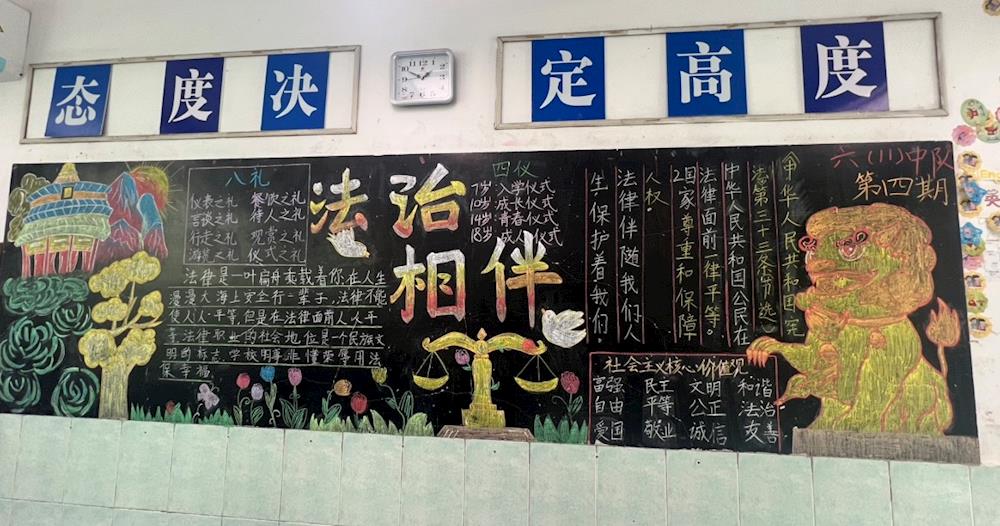 态度决
定高度
六（11）中队
第四期
法治
相伴
八礼
仪表之礼 餐饮之礼
言谈之礼 待人之礼
行走之礼 观赏之礼
游览之礼 仪式之礼
法律是一叶扁舟乘载着你在人生
漫漫大海上安全行一辈子，法律不能
使人人平等，但是在法律面前人人平
等法律职业的社会地位是一个民族文
明的标志，学校明事非懂荣辱用法
保幸福
四仪
7岁·入学仪式
10岁·成长仪式
14岁·青春仪式
18岁·成人仪式
《中华人民共和国宪
法第三十三条节选》
中华人民共和国公民在
法律面前一律平等。
国家尊重和保障
人权。
法律伴随我们人
生，保护着我们。
社会主义核心价值观
富强 民主 文明 和谐
自由 平等 公正 法治
爱国 敬业 诚信 友善